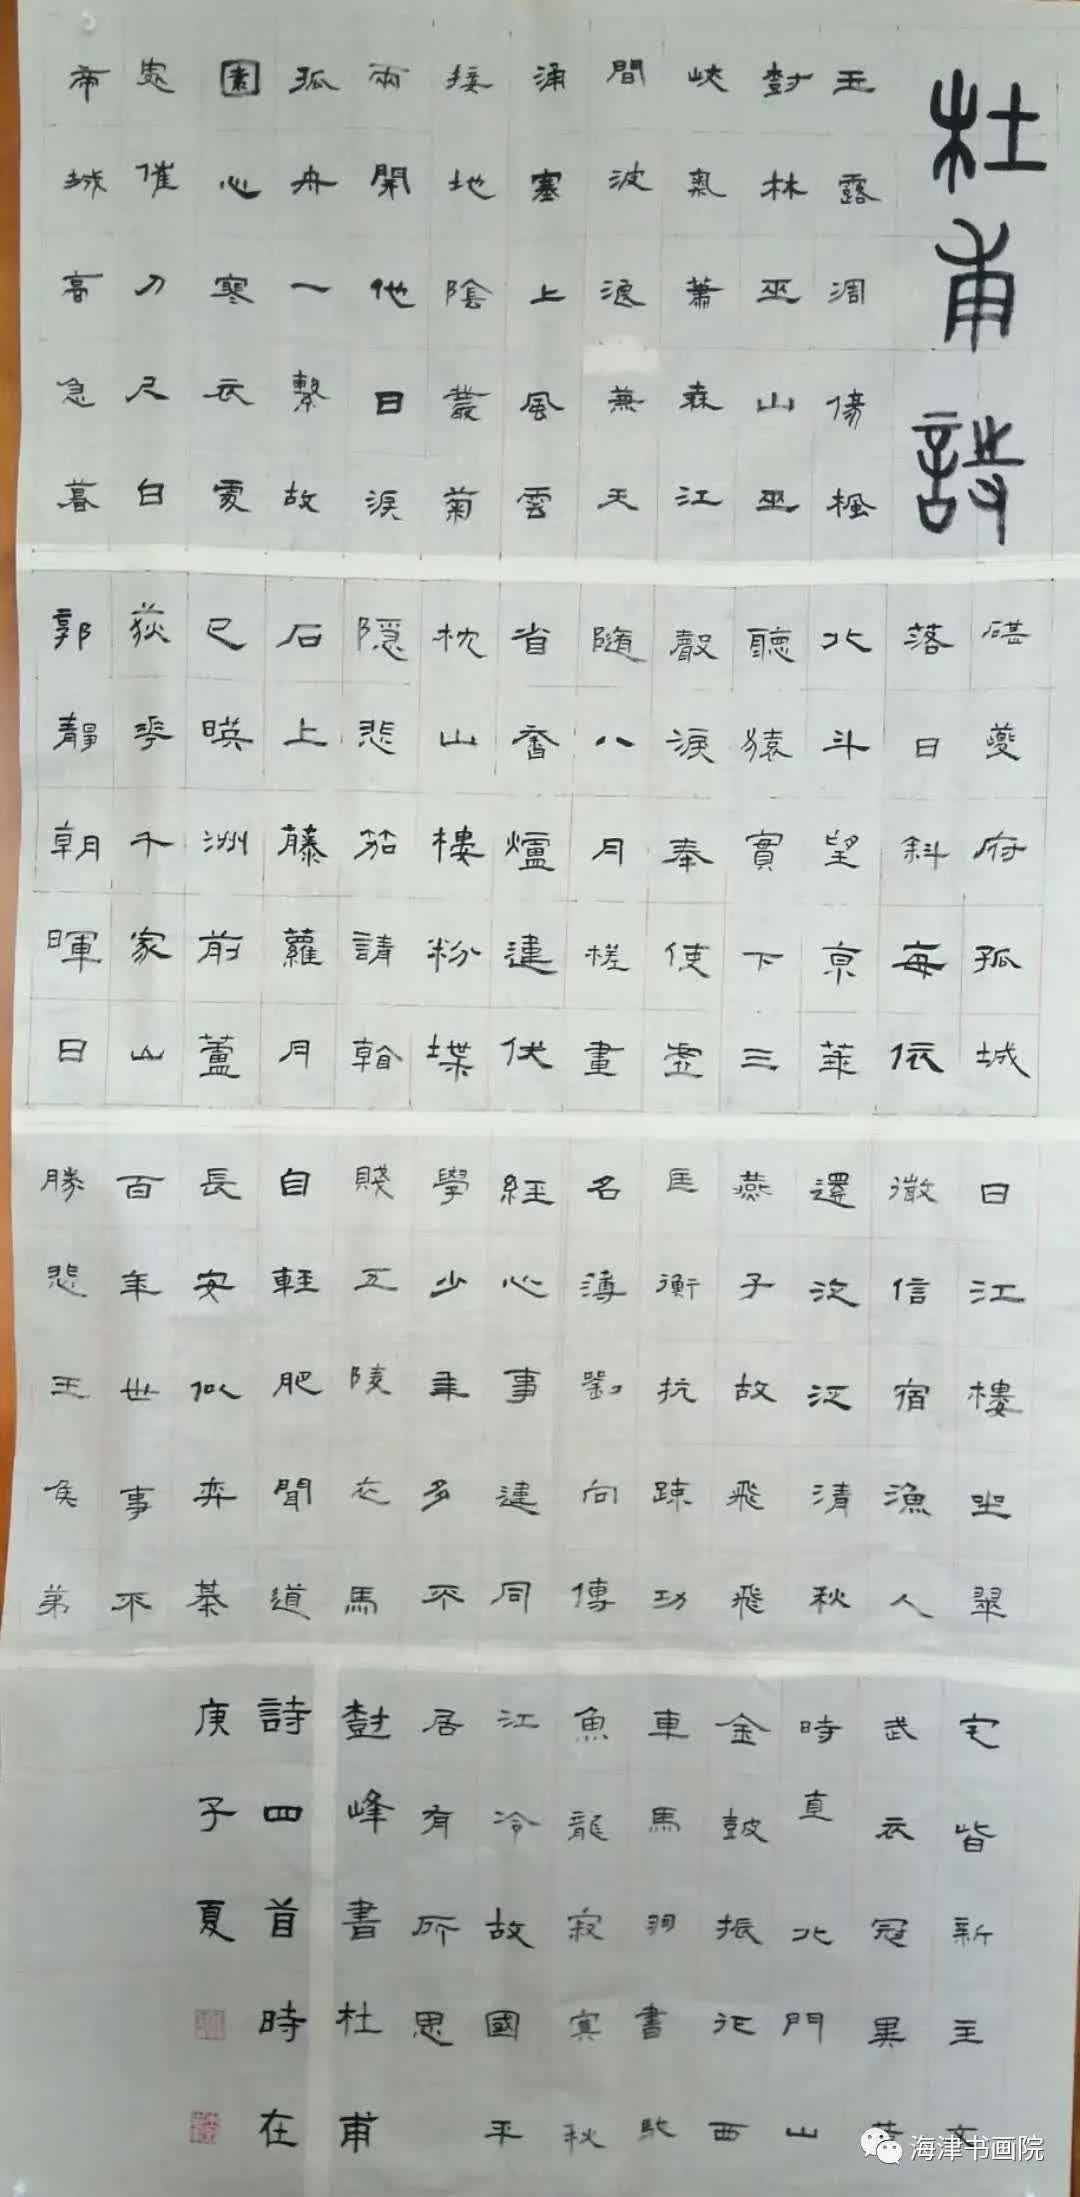 杜甫詩
玉露凋傷楓
樹林巫山巫
峽氣蕭森江
間波浪兼天
涌塞上風雲
接地陰叢菊
兩開他日淚
孤舟一繫故
園心寒衣處
處催刀尺白
帝城高急暮
碪夔府孤城
落日斜每依
北斗望京華
聽猿實下三
聲淚奉使虛
隨八月槎畫
省香爐違伏
枕山樓粉堞
隱悲笳請看
石上藤蘿月
已暎洲前蘆
荻花千家山
郭靜朝暉日
日江樓坐翠
微信宿漁人
還泛泛清秋
燕子故飛飛
匡衡抗疎功
名薄劉向傳
經心事違同
學少年多不
賤五陵衣馬
自輕肥聞道
長安似弈棊
百年世事不
勝悲王侯第
宅皆新主文
武衣冠異昔
時直北門山
金鼓振征西
車馬羽書馳
魚龍寂寞秋
江冷故國平
居有所思
樹峰書杜甫
詩四首時在
庚子夏
海津书画院